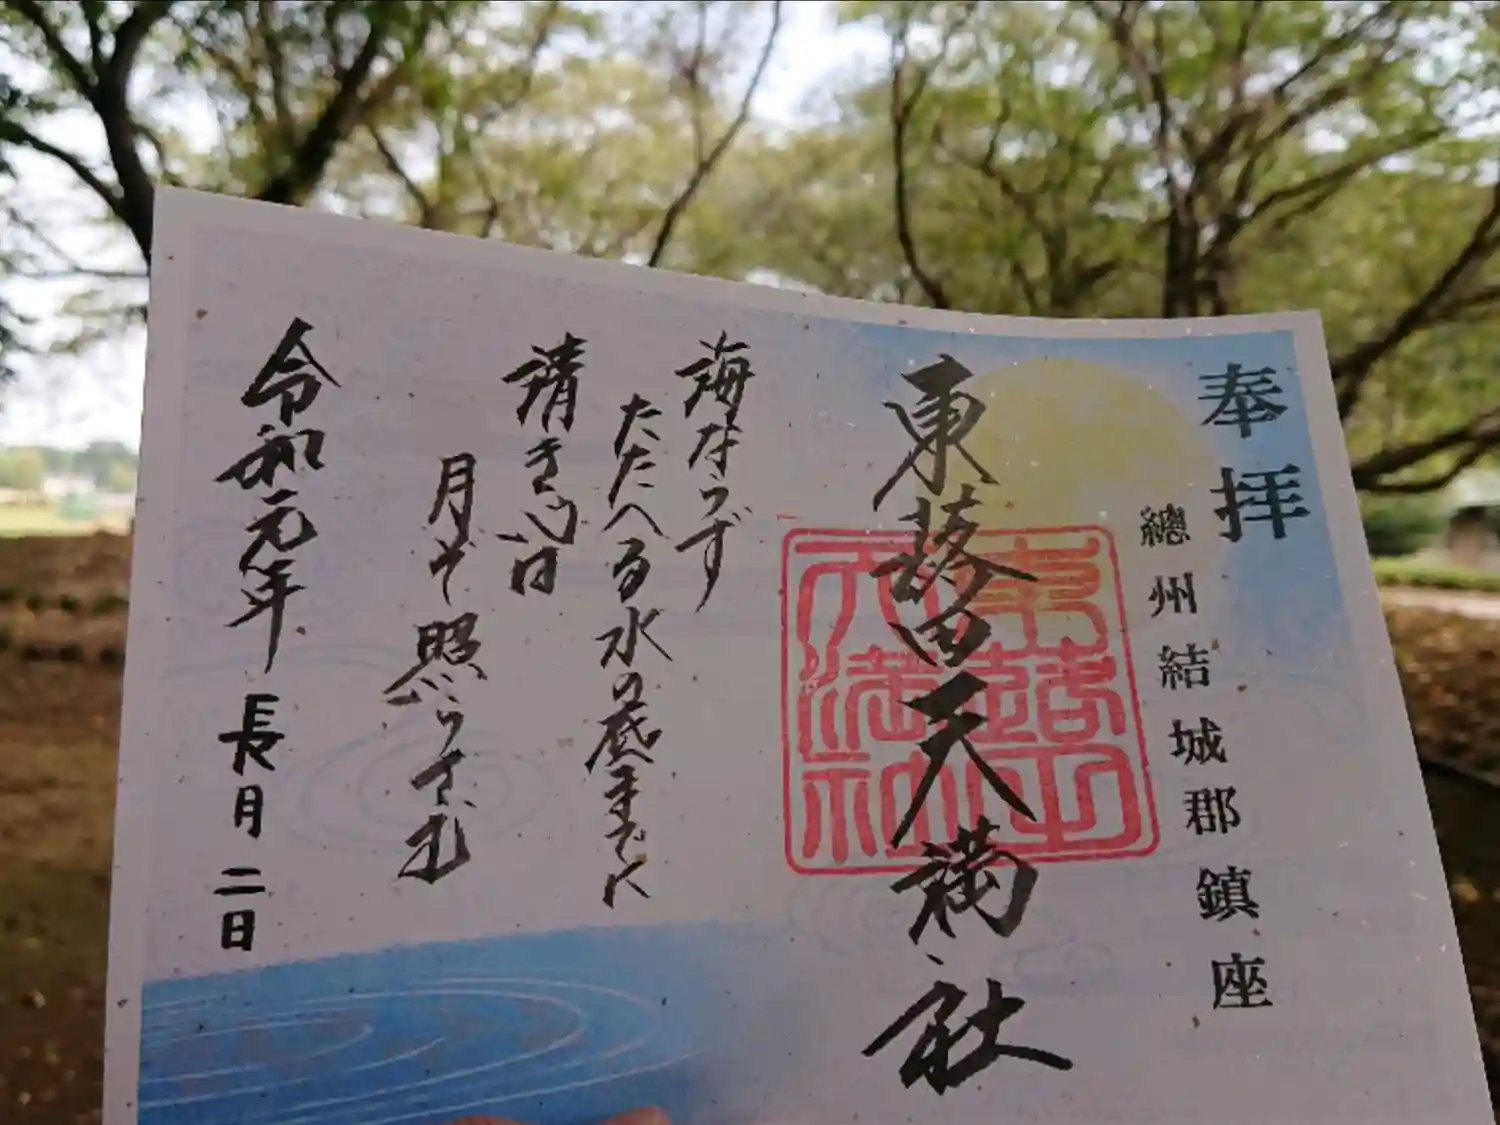 奉拝
總州結城郡鎮座
東蕗田天満社
海ならず
たたへる水の底までに
清き心は
月ぞ照らさむ
令和元年 長月 二日
東蕗田天満社